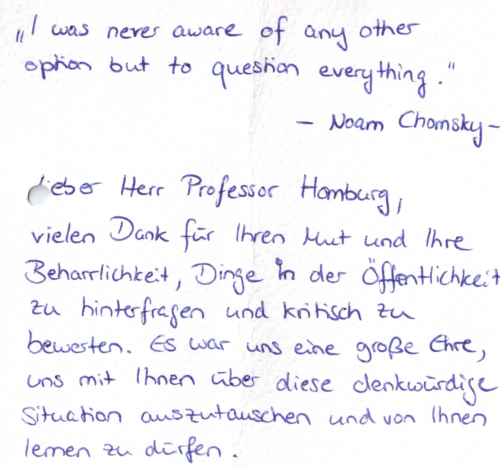 „I was never aware of any other
option but to question everything."
- Noam Chomsky -
Lieber Herr Professor Homburg,
vielen Dank für Ihren Mut und Ihre
Beharrlichkeit, Dinge in der Öffentlichkeit
zu hinterfragen und kritisch zu
bewerten. Es war uns eine große Ehre,
uns mit Ihnen über diese denkwürdige
Situation auszutauschen und von Ihnen
lernen zu dürfen.